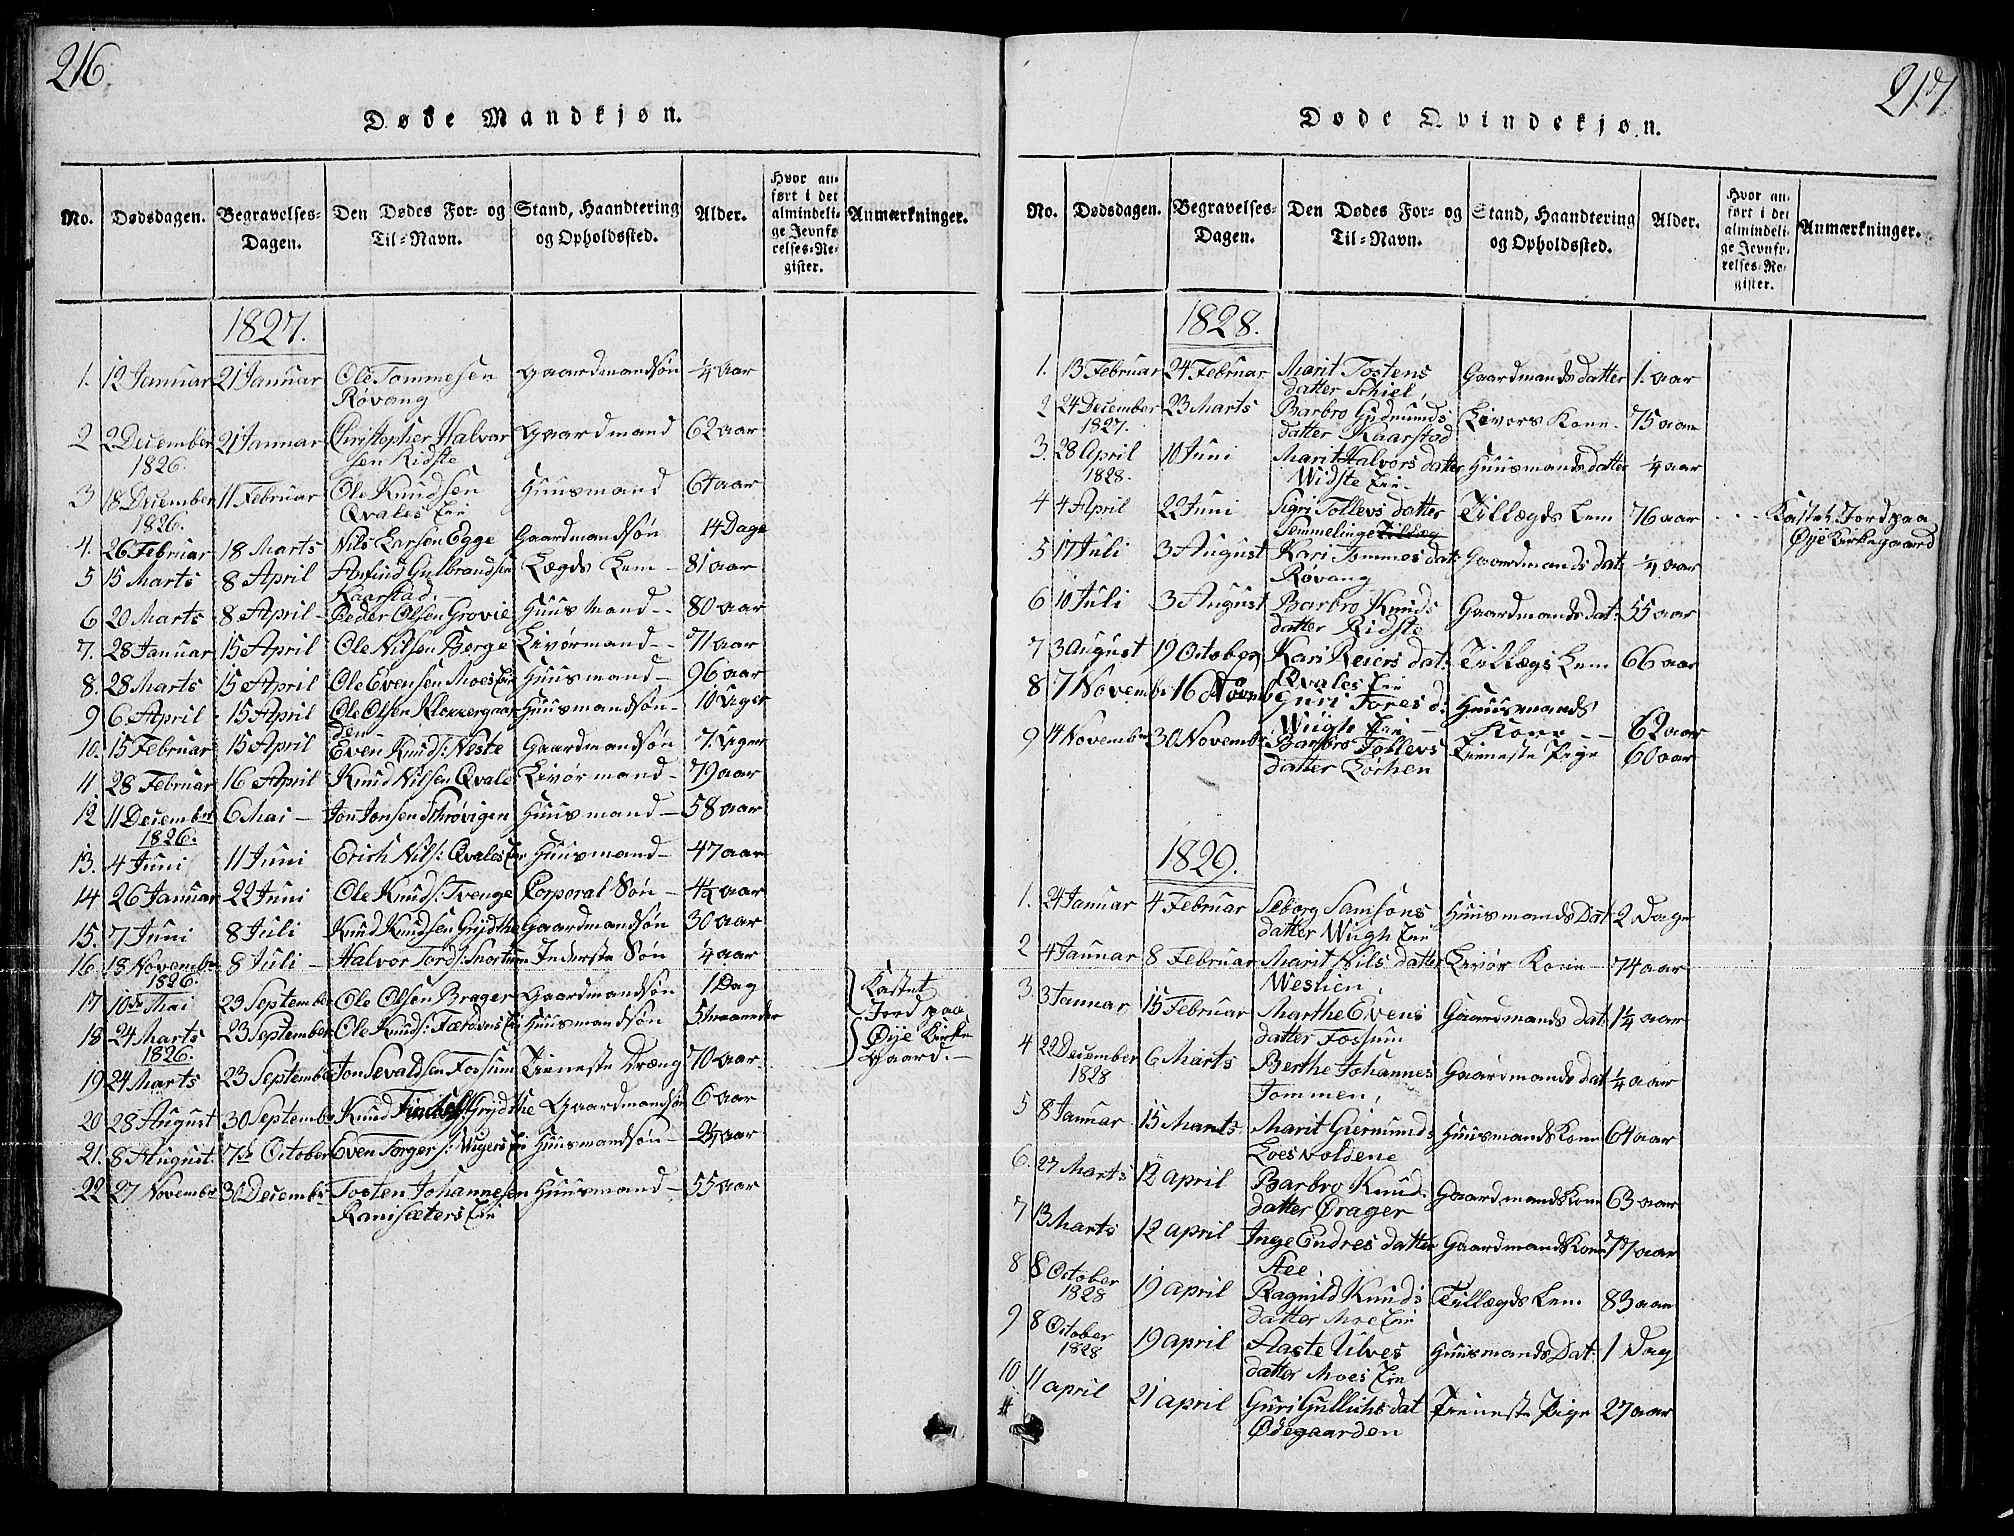 216
Døde Mandkjøn.
No. Dødsdagen. Begravelses-Dagen. Den Dødes For- og Til-Navn. Stand, Haandtering og Opholdssted. Alder. Hvor anført i det almindelige Jevnførelses-Register. Anmærkninger.
1827.
1. 12 Januar 21 Januar Ole Tommesen Gaardmandsøn 1/4 aar
Røvang
2 2 December 21 Januar Christopher Halvor Gaardmand 62 aar
1826. sen Ridste
3 18 December 11 Februar Ole Knudsen Huusmand 64 aar
1826. Qvales Eie
4. 26 Februar 18 Marts Nils Larsen Egge Gaardmandsøn 14 Dage
5 15 Marts 8 April Anfind Gulbrandsen Lægds Lem 81 aar
Kaarstad.
6 20 Marts 8 April Peder Olsen Grovie Huusmand 80 aar
7. 28 Januar 15 April Ole Nilsen Berge Livørmand 71 aar
8. 28 Marts 15 April Ole Evensen Moes Eie Huusmand 96 aar
9 6 April 15 April Ole Olsen Klokkergaar Huusmandsøn 10 Uger
den
10. 15 Februar 15 April Even Knuds: Neste Gaardmandsøn 7. Uger
11. 28 Februar 16 April Knud Nilsen Qvale Livørmand 79 aar
12 11 December 6 Mai Jon Jonsen Schrøvigen Huusmand 58 aar
1826.
13. 4 Juni 11 Juni Erich Nils: Qvales Eie Huusmand 47 aar
14 26 Januar 22 Juni Ole Knuds: Tvenge Corporal Søn 4 1/2 aar
15. 7 Juni 8 Juli Knud Knudsen Grydthe Gaardmandsøn 30 aar
16. 18 Novembr 8 Juli Halvor Tords: Inderste Søn 1/4 aar
1826.
17 10de Mai 23 September Ole Olsen Brager Gaardmandsøn 1 Dag Kastet
18 24 Marts 23 September Ole Knuds: Huusmandsøn 5 maaneder Jord paa
1826. Øye Kirke
19 24 Marts 23 Septembe Jon Sevaldsen Fossum Tieneste Dræng 70 aar Gaard.
20 28 August 30 Septembr Knud Grydthe Gaardmandsøn 6 aar
21. 8 August 7de October Even Torgers: Wigers Eie Huusmandsøn 2 1/4 aar
22 27 Novembr 30 Decembr Tosten Johannesen Huusmand 55 aar
Ranisæters Eie
217
Døde Qvindekjøn.
No. Dødsdagen. Begravelses-Dagen. Den Dødes For- og Til-Navn. Stand, Haandtering og Opholdssted. Alder. Hvor anført i det almindelige Jevnførelses-Register. Anmærkninger.
1828.
1. 13 Februar 24 Februar Marit Tostens Gaardmandsdatter 1. aar
datter Schiel,
2 24 December 23 Marts Barbro Gudmunds Livørs Kone 75 aar
1827. datter Kaarstad
3. 28 April 10 Juni Marit Halvors datter Huusmands datter 1/4 aar
1828. Widste Eie
4 4 April 22 Juni Sigri Tollevs datter Tillægds Lem 76 aar Kastet Jord paa
Semmelinge Øye Kirkegaard
5 17 Juli 3 August Kari Tommes dat: Gaardmands dat: 1/4 aar
Røvang
6 10 Juli 3 August Barbro Knuds Gaardmands dat: 55 aar
datter Ridste
7 3 August 19 October Kari Reiers dat: Tillægs Lem 66 aar
Qvales Eie
8 7 Novembr 16 Novemb Guri Tores d: Huusmands
Wiigh Eie Kone 62 aar
9 14 Novembr 30 Novembr Barbro Tollevs Tieneste Pige 60 aar
datter Lørhen
1829.
1. 24 Januar 4 Februar Seborg Samsons Huusmands Dat: 2 Dage
datter Wiigh Eie
2 4 Januar 8 Februar Marit Nils datter Livør Kone 74 aar
Westien
3. 3 Januar 15 Februar Marthe Evens Gaardmands dat 1 1/4 aar
datter Fossum
4 22 December 6 Marts Berthe Johannes Gaardmands dat 1/4 aar
1828 Tommen,
5 8 Januar 15 Marts Marit Giermunds Huusmands Kone 64 aar
Loesvoldene
6. 27 Marts 12 April Barbro Knud Gaardmands Kone 63 aar
datter Brager
7 13 Marts 12 april Inge Endres datter Gaardmands Kone 77 aar
Stee,
8 8 October 19 april Ragnild Knuds Tillægds Lem 83 aar
1828 datter Moe Eie
9 8 October 19 april Aaste Ulves Huusmands Dat: 1 Dag
1828 datter Moes Eie
10 11 april 21 april Guri Gullichs dat Tieneste Pige 27 aar
Ødegaarden